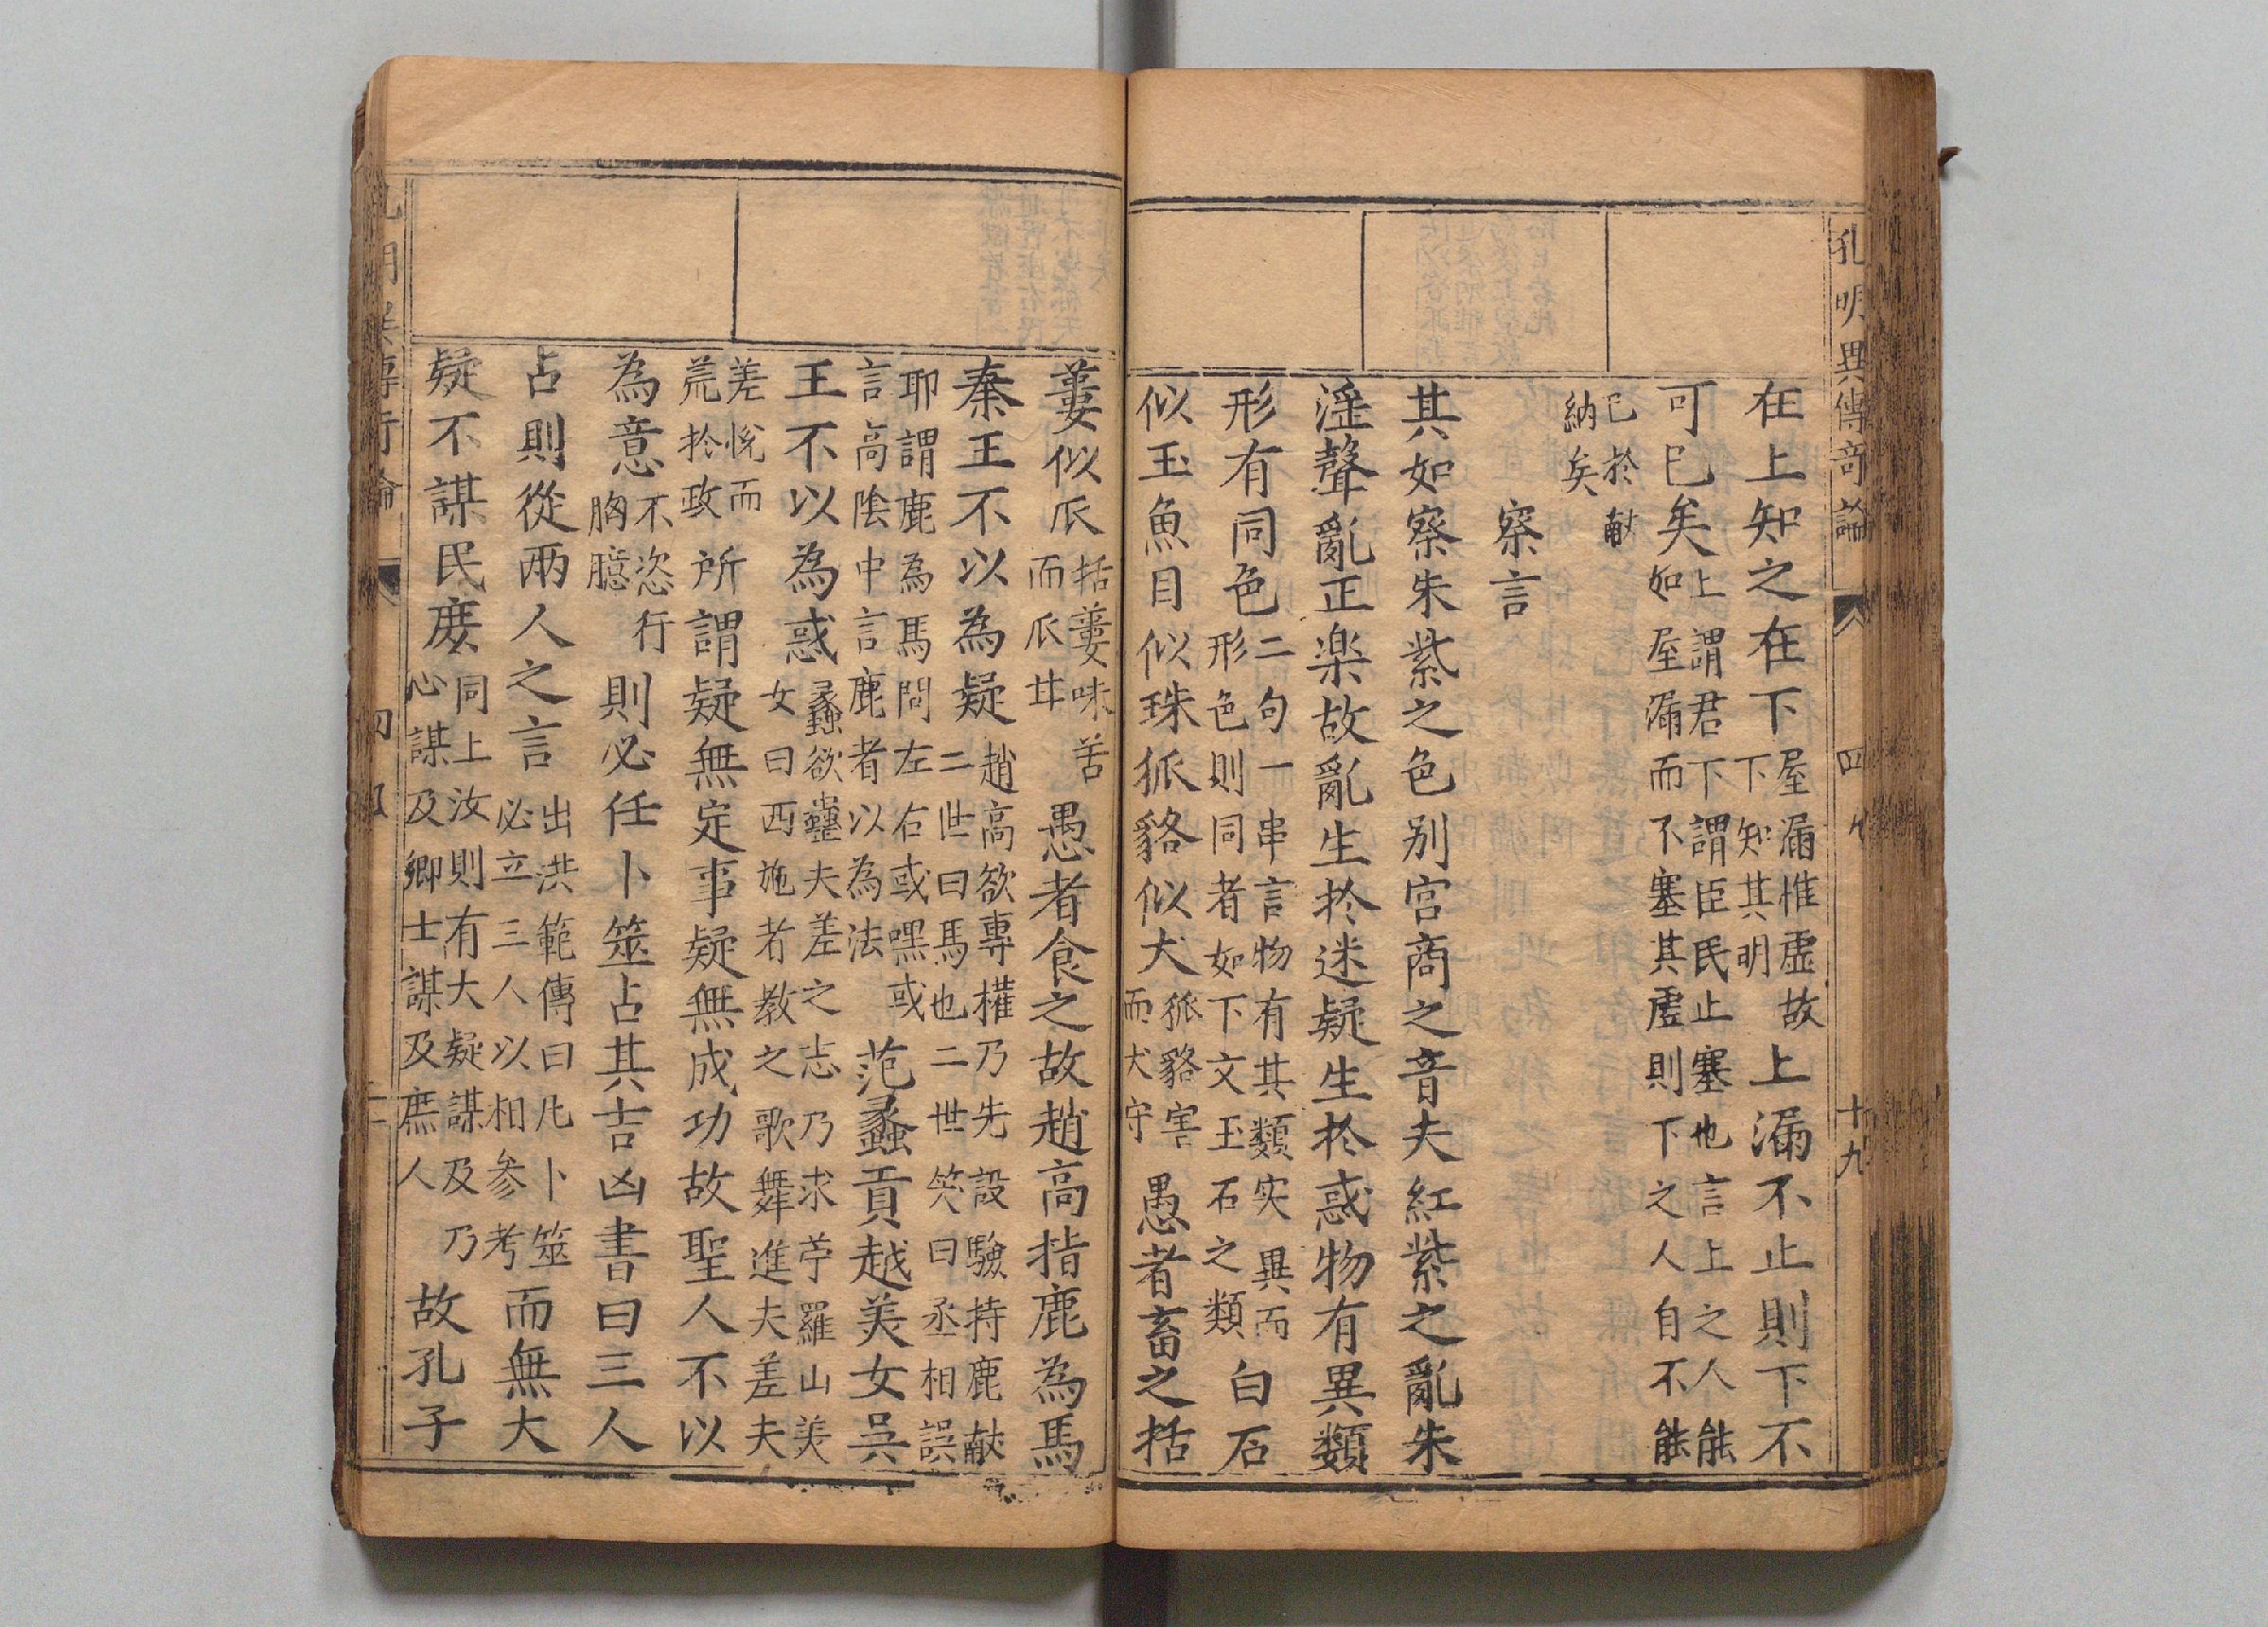 孔明異傳奇論 四 十九
在上知之在下屋漏惟虛故下知其明上漏不止則下不
可已矣上謂君下謂臣民止塞也言上之人能如屋漏而不塞其虛則下之人自不能
已於献納矣
察言
其如察朱紫之色别宫商之音夫紅紫之亂朱
淫聲亂正楽故亂生於迷疑生於惑物有異類
形有同色二句一串言物有其類实異而形色則同者如下文玉石之類白石
似玉魚目似珠狐貉似犬狐貉害而犬守愚者畜之括
蔞似瓜括蔞味苦而瓜甘愚者食之故趙高指鹿為馬
秦王不以為疑趙高欲專權乃先設驗持鹿献二世曰馬也二世笑曰丞相誤
耶謂鹿為馬問左右或嘿或言高陰中言鹿者以為法范蠡貢越美女吳
王不以為惑蠡欲蠱夫差之志乃求苧羅山美女曰西施者教之歌舞進夫差夫
差悅而荒於政所謂疑無定事疑無成功故聖人不以
為意不恣行胸臆則必任卜筮占其吉凶書曰三人
占則從兩人之言出洪範傳曰凡卜筮必立三人以相参考而無大
疑不謀民庶同上汝則有大疑謀及乃心謀及卿士謀及庶人故孔子